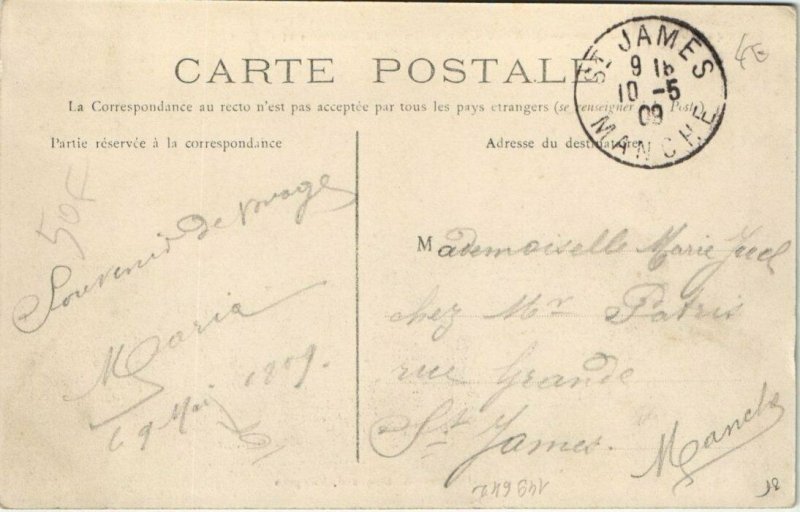 CARTE POSTALE
La Correspondance au recto n'est pas acceptée par tous les pays etrangers (se renseigner Post.)
Partie réservée à la correspondance
Adresse du destinataire
ST JAMES
9 15
10 -5
09
MANCHE
4E
50F
Souvenir de voyage
Maria
9 Mai
Mademoiselle Marie
chez Mr Patris
rue Grande
St James.
Manche
149642